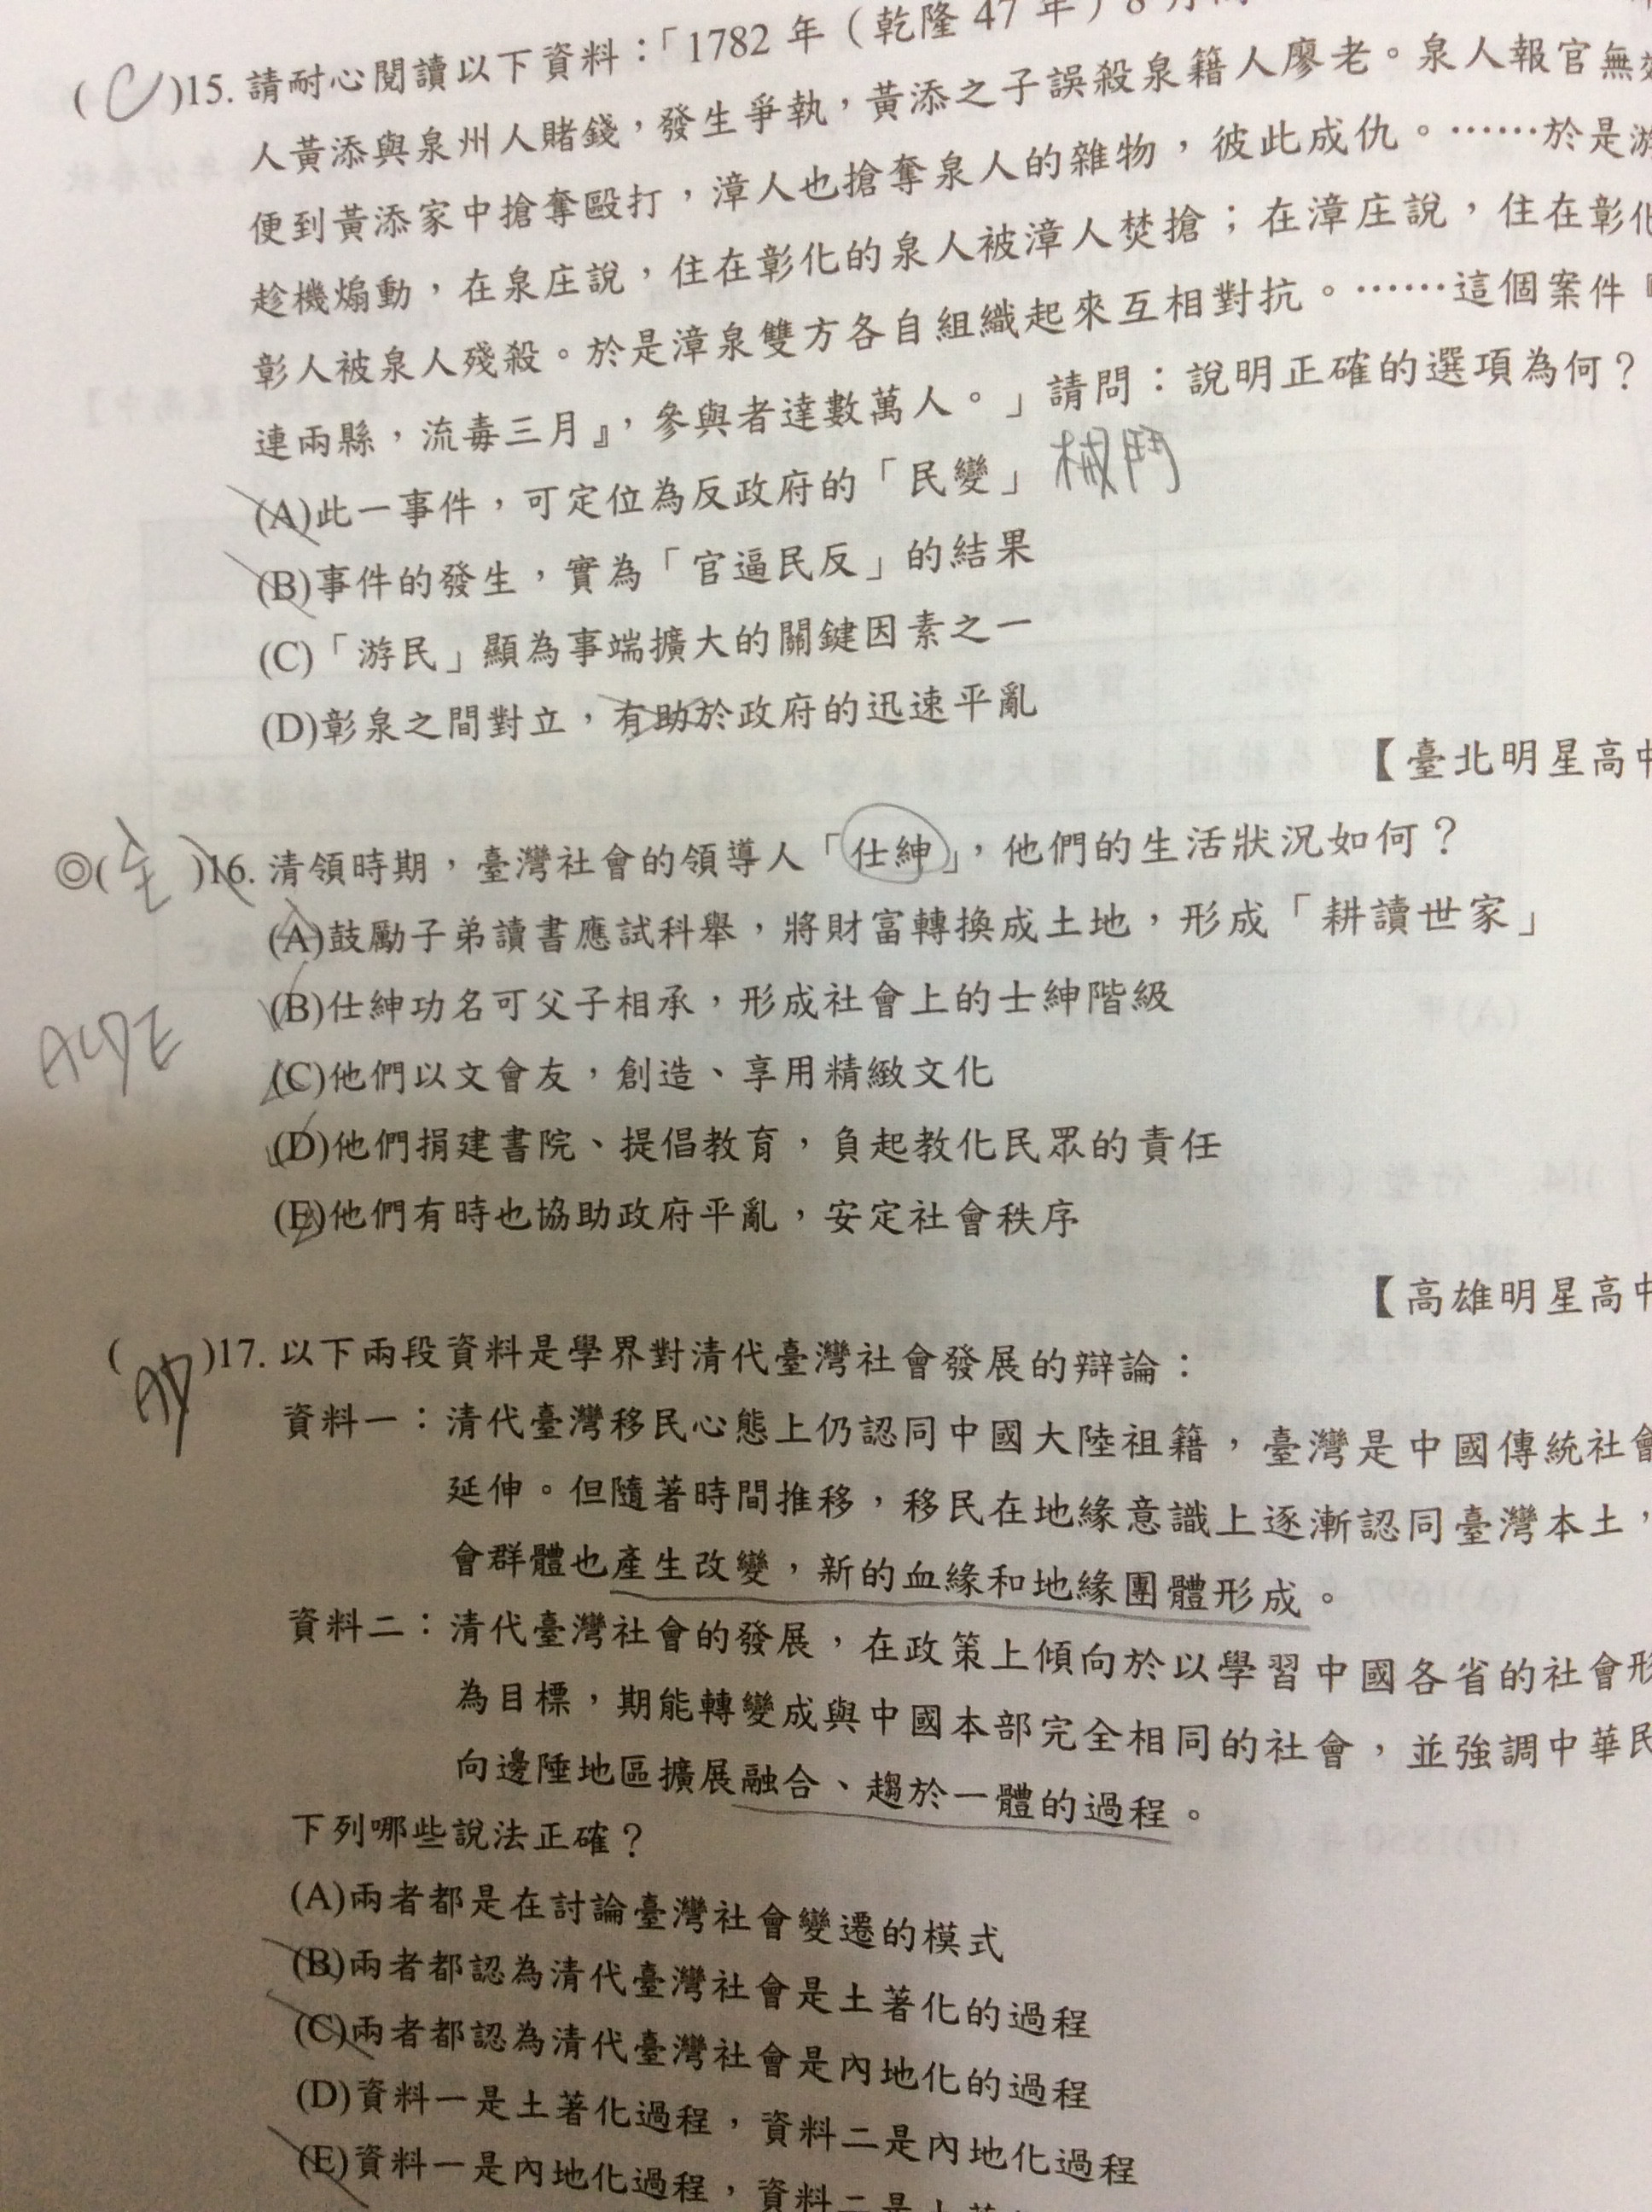 (C)15. 請耐心閱讀以下資料：「1782年（乾隆47年）8月
人黃添與泉州人賭錢，發生爭執，黃添之子誤殺泉籍人廖老。泉人報官無
便到黃添家中搶奪毆打，漳人也搶奪泉人的雜物，彼此成仇。……於是游
趁機煽動，在泉庄說，住在彰化的泉人被漳人焚搶；在漳庄說，住在彰化
彰人被泉人殘殺。於是漳泉雙方各自組織起來互相對抗。……這個案件『
連兩縣，流毒三月』，參與者達數萬人。」請問：說明正確的選項為何？
(A)此一事件，可定位為反政府的「民變」 械鬥
(B)事件的發生，實為「官逼民反」的結果
(C)「游民」顯為事端擴大的關鍵因素之一
(D)彰泉之間對立，有助於政府的迅速平亂
【臺北明星高中
◎(全)16. 清領時期，臺灣社會的領導人「仕紳」，他們的生活狀況如何？
(A)鼓勵子弟讀書應試科舉，將財富轉換成土地，形成「耕讀世家」
(B)仕紳功名可父子相承，形成社會上的士紳階級
ACDE
(C)他們以文會友，創造、享用精緻文化
(D)他們捐建書院、提倡教育，負起教化民眾的責任
(E)他們有時也協助政府平亂，安定社會秩序
【高雄明星高中
(AD)17. 以下兩段資料是學界對清代臺灣社會發展的辯論：
資料一：清代臺灣移民心態上仍認同中國大陸祖籍，臺灣是中國傳統社會
延伸。但隨著時間推移，移民在地緣意識上逐漸認同臺灣本土，
會群體也產生改變，新的血緣和地緣團體形成。
資料二：清代臺灣社會的發展，在政策上傾向於以學習中國各省的社會形
為目標，期能轉變成與中國本部完全相同的社會，並強調中華民
向邊陲地區擴展融合、趨於一體的過程。
下列哪些說法正確？
(A)兩者都是在討論臺灣社會變遷的模式
(B)兩者都認為清代臺灣社會是土著化的過程
(C)兩者都認為清代臺灣社會是內地化的過程
(D)資料一是土著化過程，資料二是內地化過程
(E)資料一是內地化過程，資料二是土著